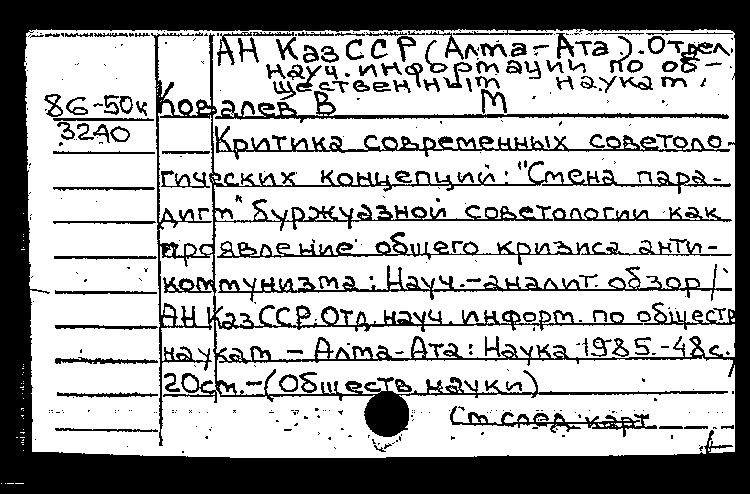 АН КазССР (Алма-Ата). Отдел
науч. информации по об-
щественным наукам.
86-50к Ковалев, В М
3240 Критика современных советоло-
гических концепций: "Смена пара-
дигм" буржуазной советологии как
проявление общего кризиса анти-
коммунизма: Науч.-аналит. обзор /
АН КазССР. Отд. науч. информ. по обществ
наукам – Алма-Ата: Наука, 1985.-48с.;
20см.-(Обществ. науки)
См след. карт